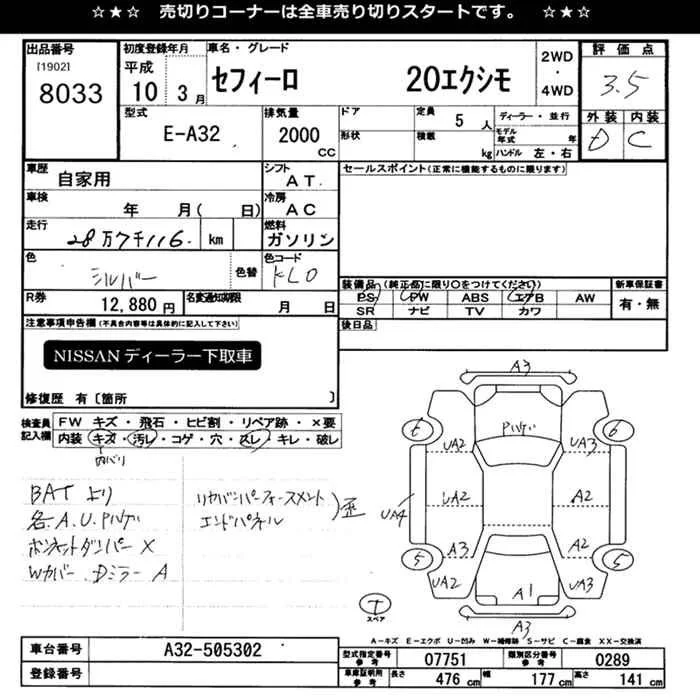 ☆★☆ 売切りコーナーは全車売り切りスタートです。 ☆★☆
出品番号 初度登録年月 車名・グレード 2WD・4WD 評価点
[1902] 平成
8033 10 3月 セフィーロ 20エクシモ 3.5
型式 排気量 ドア 定員 5人 ディーラー・並行 外装 内装
E-A32 2000cc 形状 積載 kg モデル年式 年 D C
ハンドル 左・右
車歴 自家用 シフト AT セールスポイント(正常に機能するものに限ります)
車検 年 月( 日) 冷房 AC
走行 28万7千116 km 燃料 ガソリン
色 シルバー 色替 色コード KL0
装備品(純正品に限り○をつけてください) 新車保証書
R券 12,880円 名変通知期限 月 日 PS PW ABS エアB AW 有・無
SR ナビ TV カワ
注意事項申告欄(不具合内容等は具体的に記入して下さい) 後日品
NISSANディーラー下取車
修復歴 有〔箇所 〕
検査員記入欄 FW キズ・飛石・ヒビ割・リペア跡・×要
内装 キズ・汚レ・コゲ・穴・スレ・キレ・破レ
内バリ
BATより
各A.U.Pハゲ
ボンネットダンパー×
Wカバー.DミラーA
リヤバンパーフォースメント
エンドパネル
)歪
A3
Pハゲ
6 6
UA2 UA3
UA4 UA2 A2
A3 A2
5 5
UA2 A1 UA3
A3
T
スペア
A-キズ E-エクボ U-凹み W-補修跡 S-サビ C-腐食 XX-交換済
車台番号 A32-505302
登録番号
型式指定番号 参考 07751 類別区分番号 参考 0289
車庫証明用 参考 長さ 476cm 幅 177cm 高さ 141cm